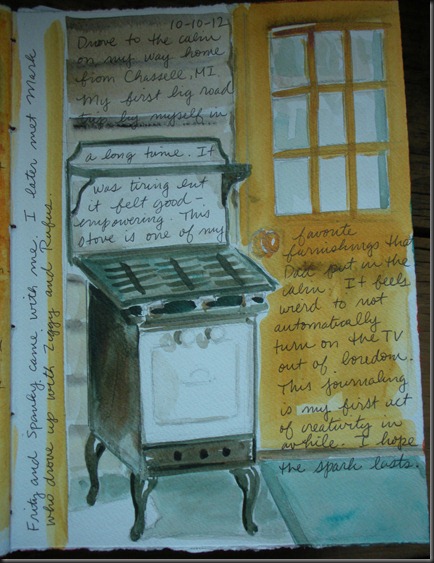 10-10-12
Drove to the cabin
on my way home
from Chassell, MI.
My first big road
trip by myself in
a long time. It
was tiring but
it felt good -
empowering. This
stove is one of my
favorite
furnishings that
Dad put in the
cabin. It feels
weird to not
automatically
turn on the TV
out of boredom.
This journaling
is my first act
of creativity in
awhile. I hope
the spark lasts.
Frity and Spanky came with me. I later met Mark
who drove up with Ziggy and Rufus.